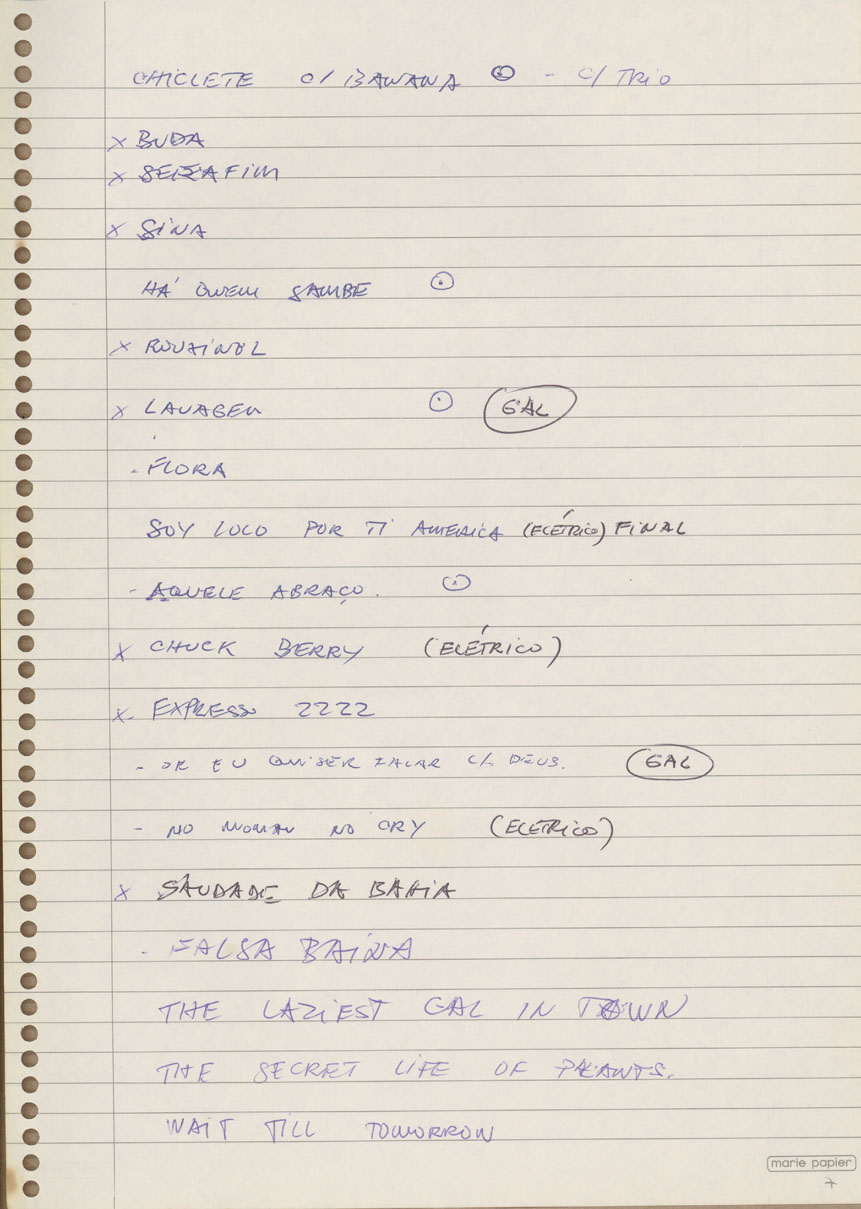 CHICLETE C/ BANANA ⊙ - C/ TRIO
x BUDA
x SERAFIM
x SINA
HÁ QUEM SAMBE ⊙
x ROUXINOL
x LAVAGEM ⊙ GAL
- FLORA
SOY LOCO POR TI AMERICA (ELÉTRICO) FINAL
- AQUELE ABRAÇO. ⊙
x CHUCK BERRY (ELÉTRICO)
x- EXPRESSO 2222
- SE EU QUISER FALAR C/ DEUS. GAL
- NO WOMAN NO CRY (ELETRICO)
x SAUDADE DA BAHIA
- FALSA BAIANA
THE LAZIEST GAL IN TOWN
THE SECRET LIFE OF PLANTS.
WAIT TILL TOMORROW
marie papier
7